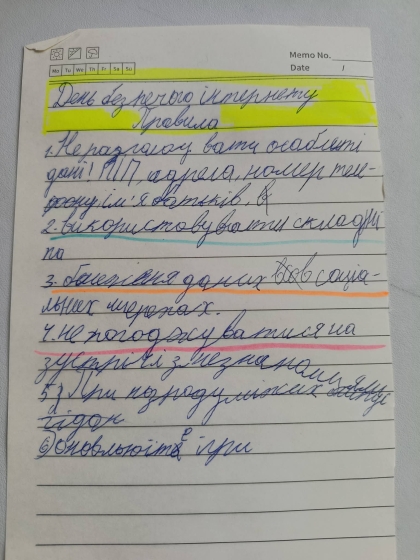 Memo No.
Mo Tu We Th Fr Sa Su
Date /
День безпечого інтернету
Правила
1. Не разглагау вати особляті
дані! ПІП, адреса, номер теле-
фону ім'я батьків. В
2. використовувати складні
па
3. даних в соціа-
льних мережах.
4. не погоджуватися на
зустрічі з незнаном
5) При
6) Оновлюйте ігри